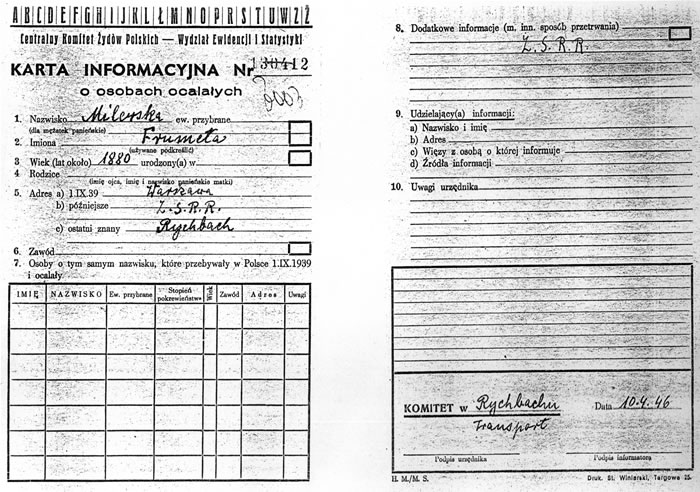 A B C D E F G H I J K L Ł M N O P R S T U W Z Ż
Centralny Komitet Żydów Polskich — Wydział Ewidencji i Statystyki
KARTA INFORMACYJNA Nr 130412
o osobach ocalałych
1. Nazwisko Milewska ew. przybrane
(dla mężatek panieńskie)
2. Imiona Frumeta
(używane podkreślić)
3 Wiek (lat około) 1880 urodzony(a) w
4 Rodzice
(imię ojca, imię i nazwisko panieńskie matki)
5. Adres a) 1.IX.39 Warszawa
b) późniejsze Z.S.R.R.
c) ostatni znany Rychbach
6. Zawód
7. Osoby o tym samym nazwisku, które przebywały w Polsce 1.IX.1939
i ocalały.
IMIĘ NAZWISKO Ew. przybrane Stopień pokrewieństwa Wiek Zawód Adres Uwagi
8. Dodatkowe informacje (m. inn. sposób przetrwania)
Z.S.R.R.
9. Udzielający(a) informacji:
a) Nazwisko i imię
b) Adres
c) Więzy z osobą o której informuje
d) Źródła informacji
10. Uwagi urzędnika
KOMITET w Rychbachu Data 10.4.46
Transport
Podpis urzędnika Podpis informatora
H. M./M. S. Druk. St. Winiarski, Targowa 25.